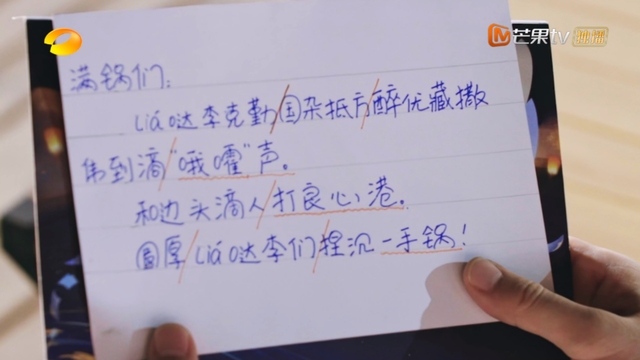 芒果tv 独播
满锅们:
Liá哒李克勤国杂抵方醉优藏撒
伟到滴“哦嚯”声。
和边头滴人打良心港。
囸厚Liá哒李们捏沉一手锅!